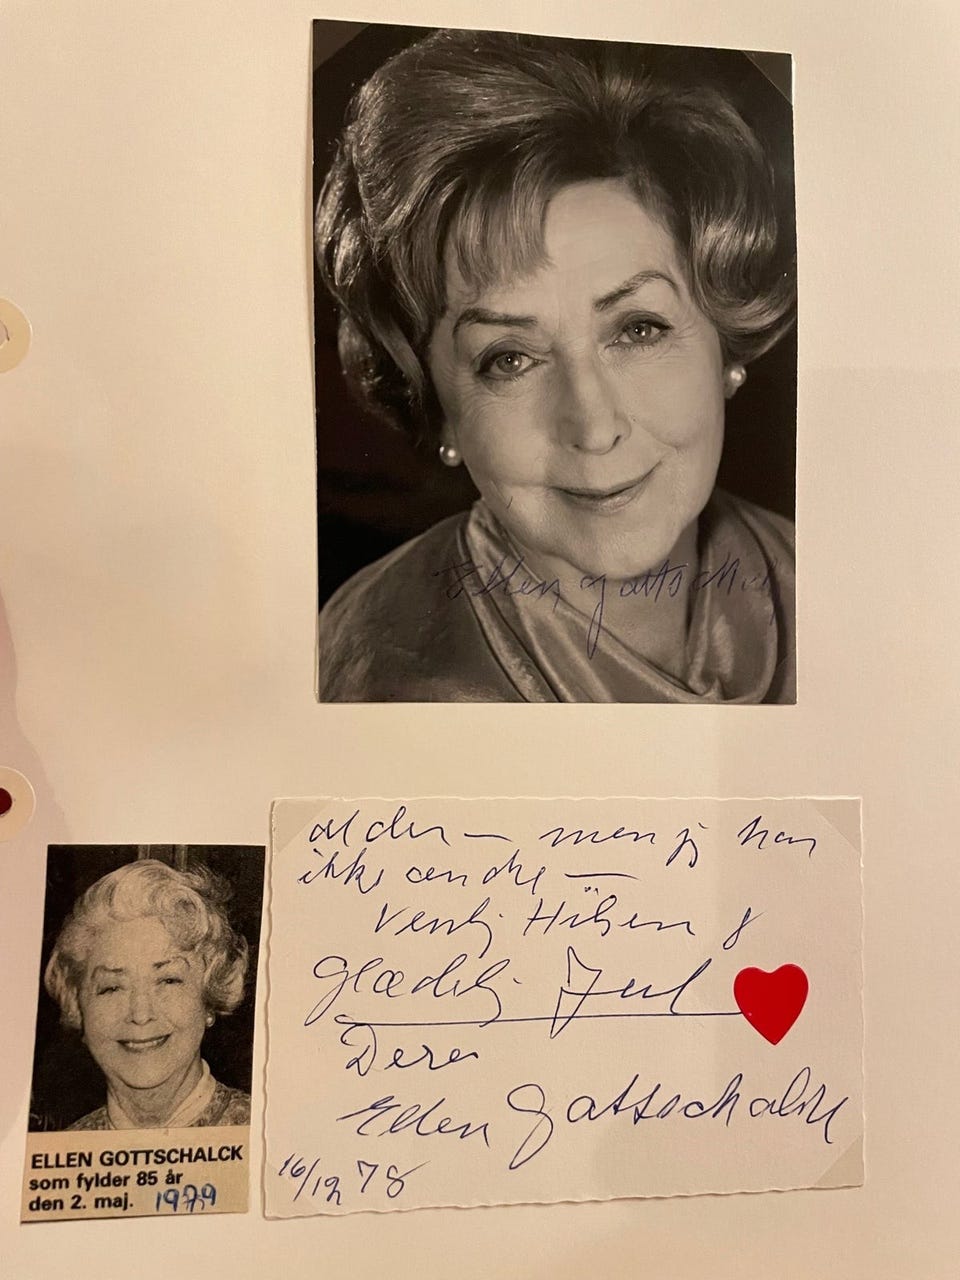 Ellen Gottschalck
alder — men jeg kan
ikke ændre —
Venlig Hilsen &
Glædelig Jul
Deres
Ellen Gottschalck
16/12 78
ELLEN GOTTSCHALCK
som fylder 85 år
den 2. maj. 1979